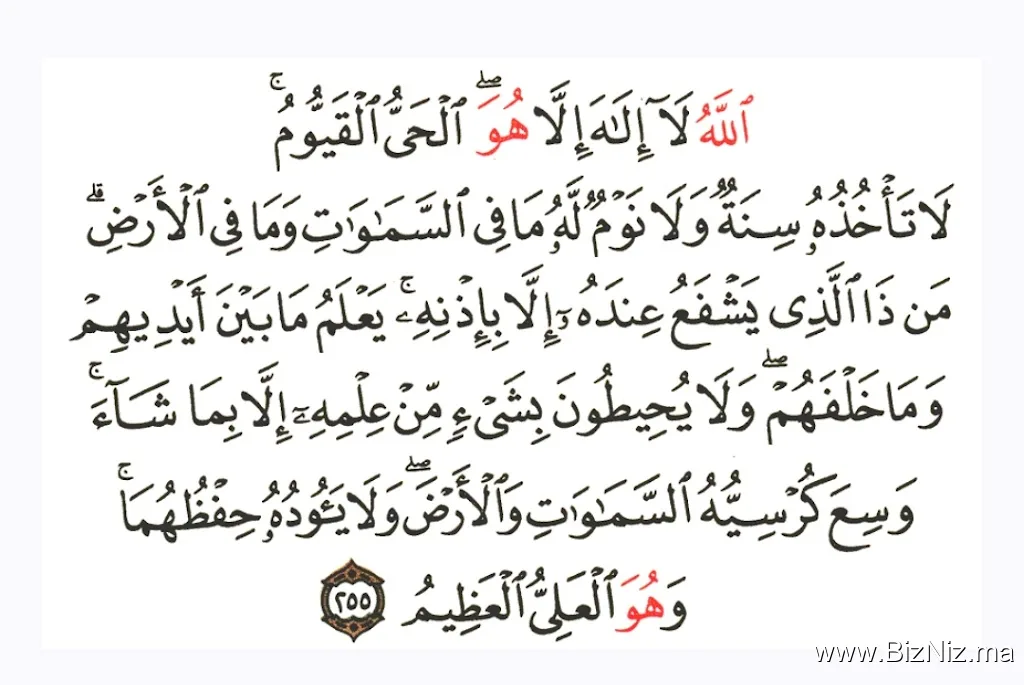 ٱللَّهُ لَآ إِلَـٰهَ إِلَّا هُوَ ۖ ٱلْحَىُّ ٱلْقَيُّومُ ۚ
لَا تَأْخُذُهُۥ سِنَةٌ وَلَا نَوْمٌ لَّهُۥ مَا فِى ٱلسَّمَـٰوَٰتِ وَمَا فِى ٱلْأَرْضِ ۗ
مَن ذَا ٱلَّذِى يَشْفَعُ عِندَهُۥٓ إِلَّا بِإِذْنِهِۦ ۚ يَعْلَمُ مَا بَيْنَ أَيْدِيهِمْ
وَمَا خَلْفَهُمْ ۖ وَلَا يُحِيطُونَ بِشَىْءٍ مِّنْ عِلْمِهِۦٓ إِلَّا بِمَا شَآءَ ۚ
وَسِعَ كُرْسِيُّهُ ٱلسَّمَـٰوَٰتِ وَٱلْأَرْضَ ۖ وَلَا يَـُٔودُهُۥ حِفْظُهُمَا ۚ
وَهُوَ ٱلْعَلِىُّ ٱلْعَظِيمُ ٢٥٥
www.BizNiz.ma